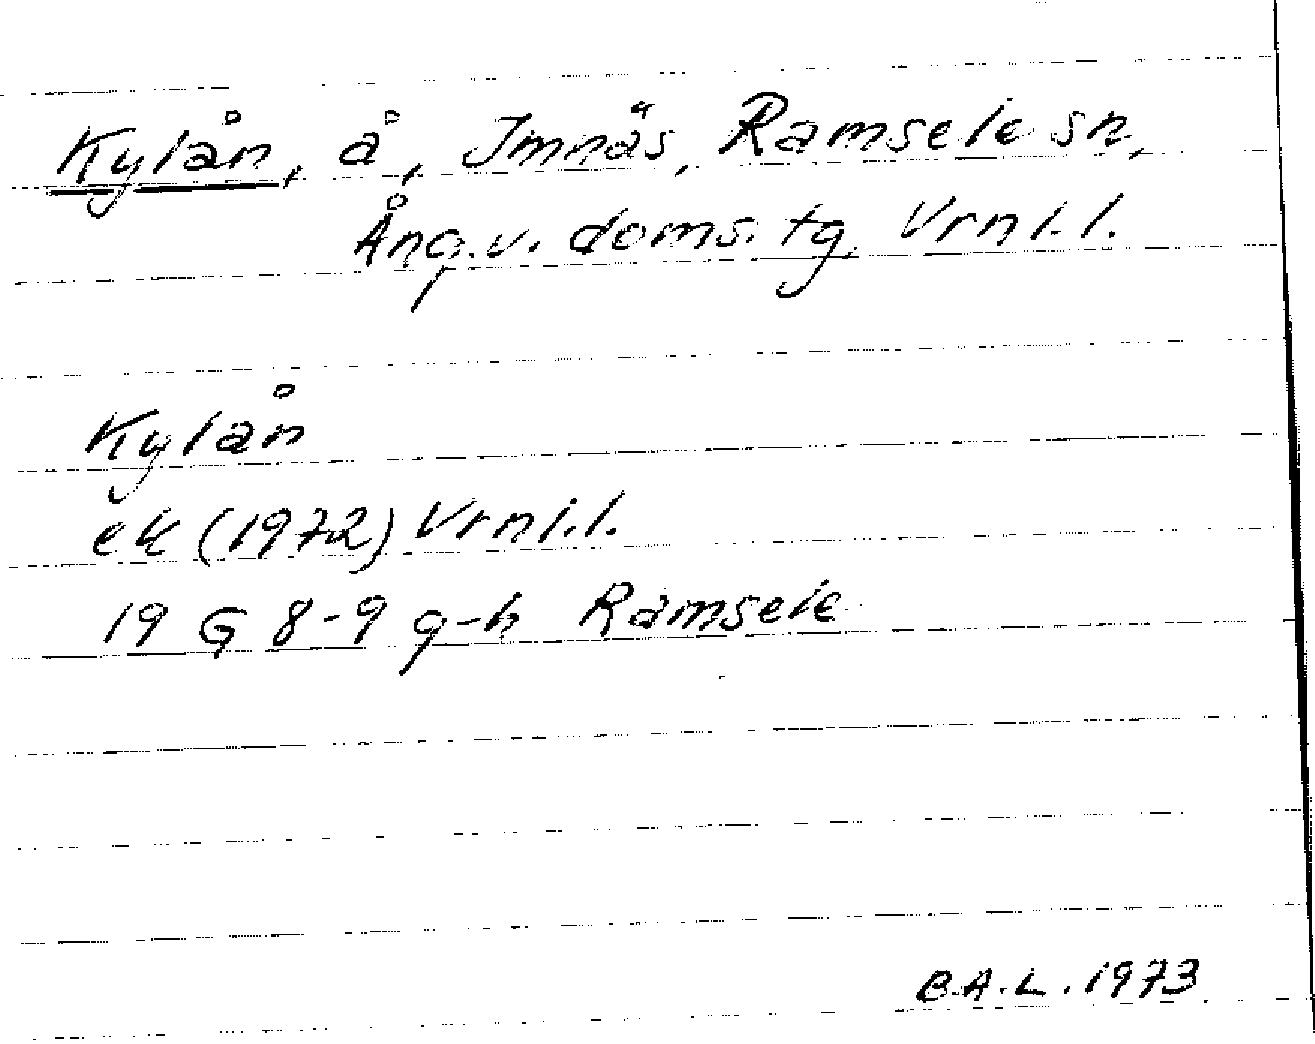 Kylån, å, Imnäs, Ramsele sn,
Ång.v. doms. tg. Vrnl.l.
Kylån
ek (1972) Vrnl.l.
19 G 8-9 g-h Ramsele
B.A.L. 1973